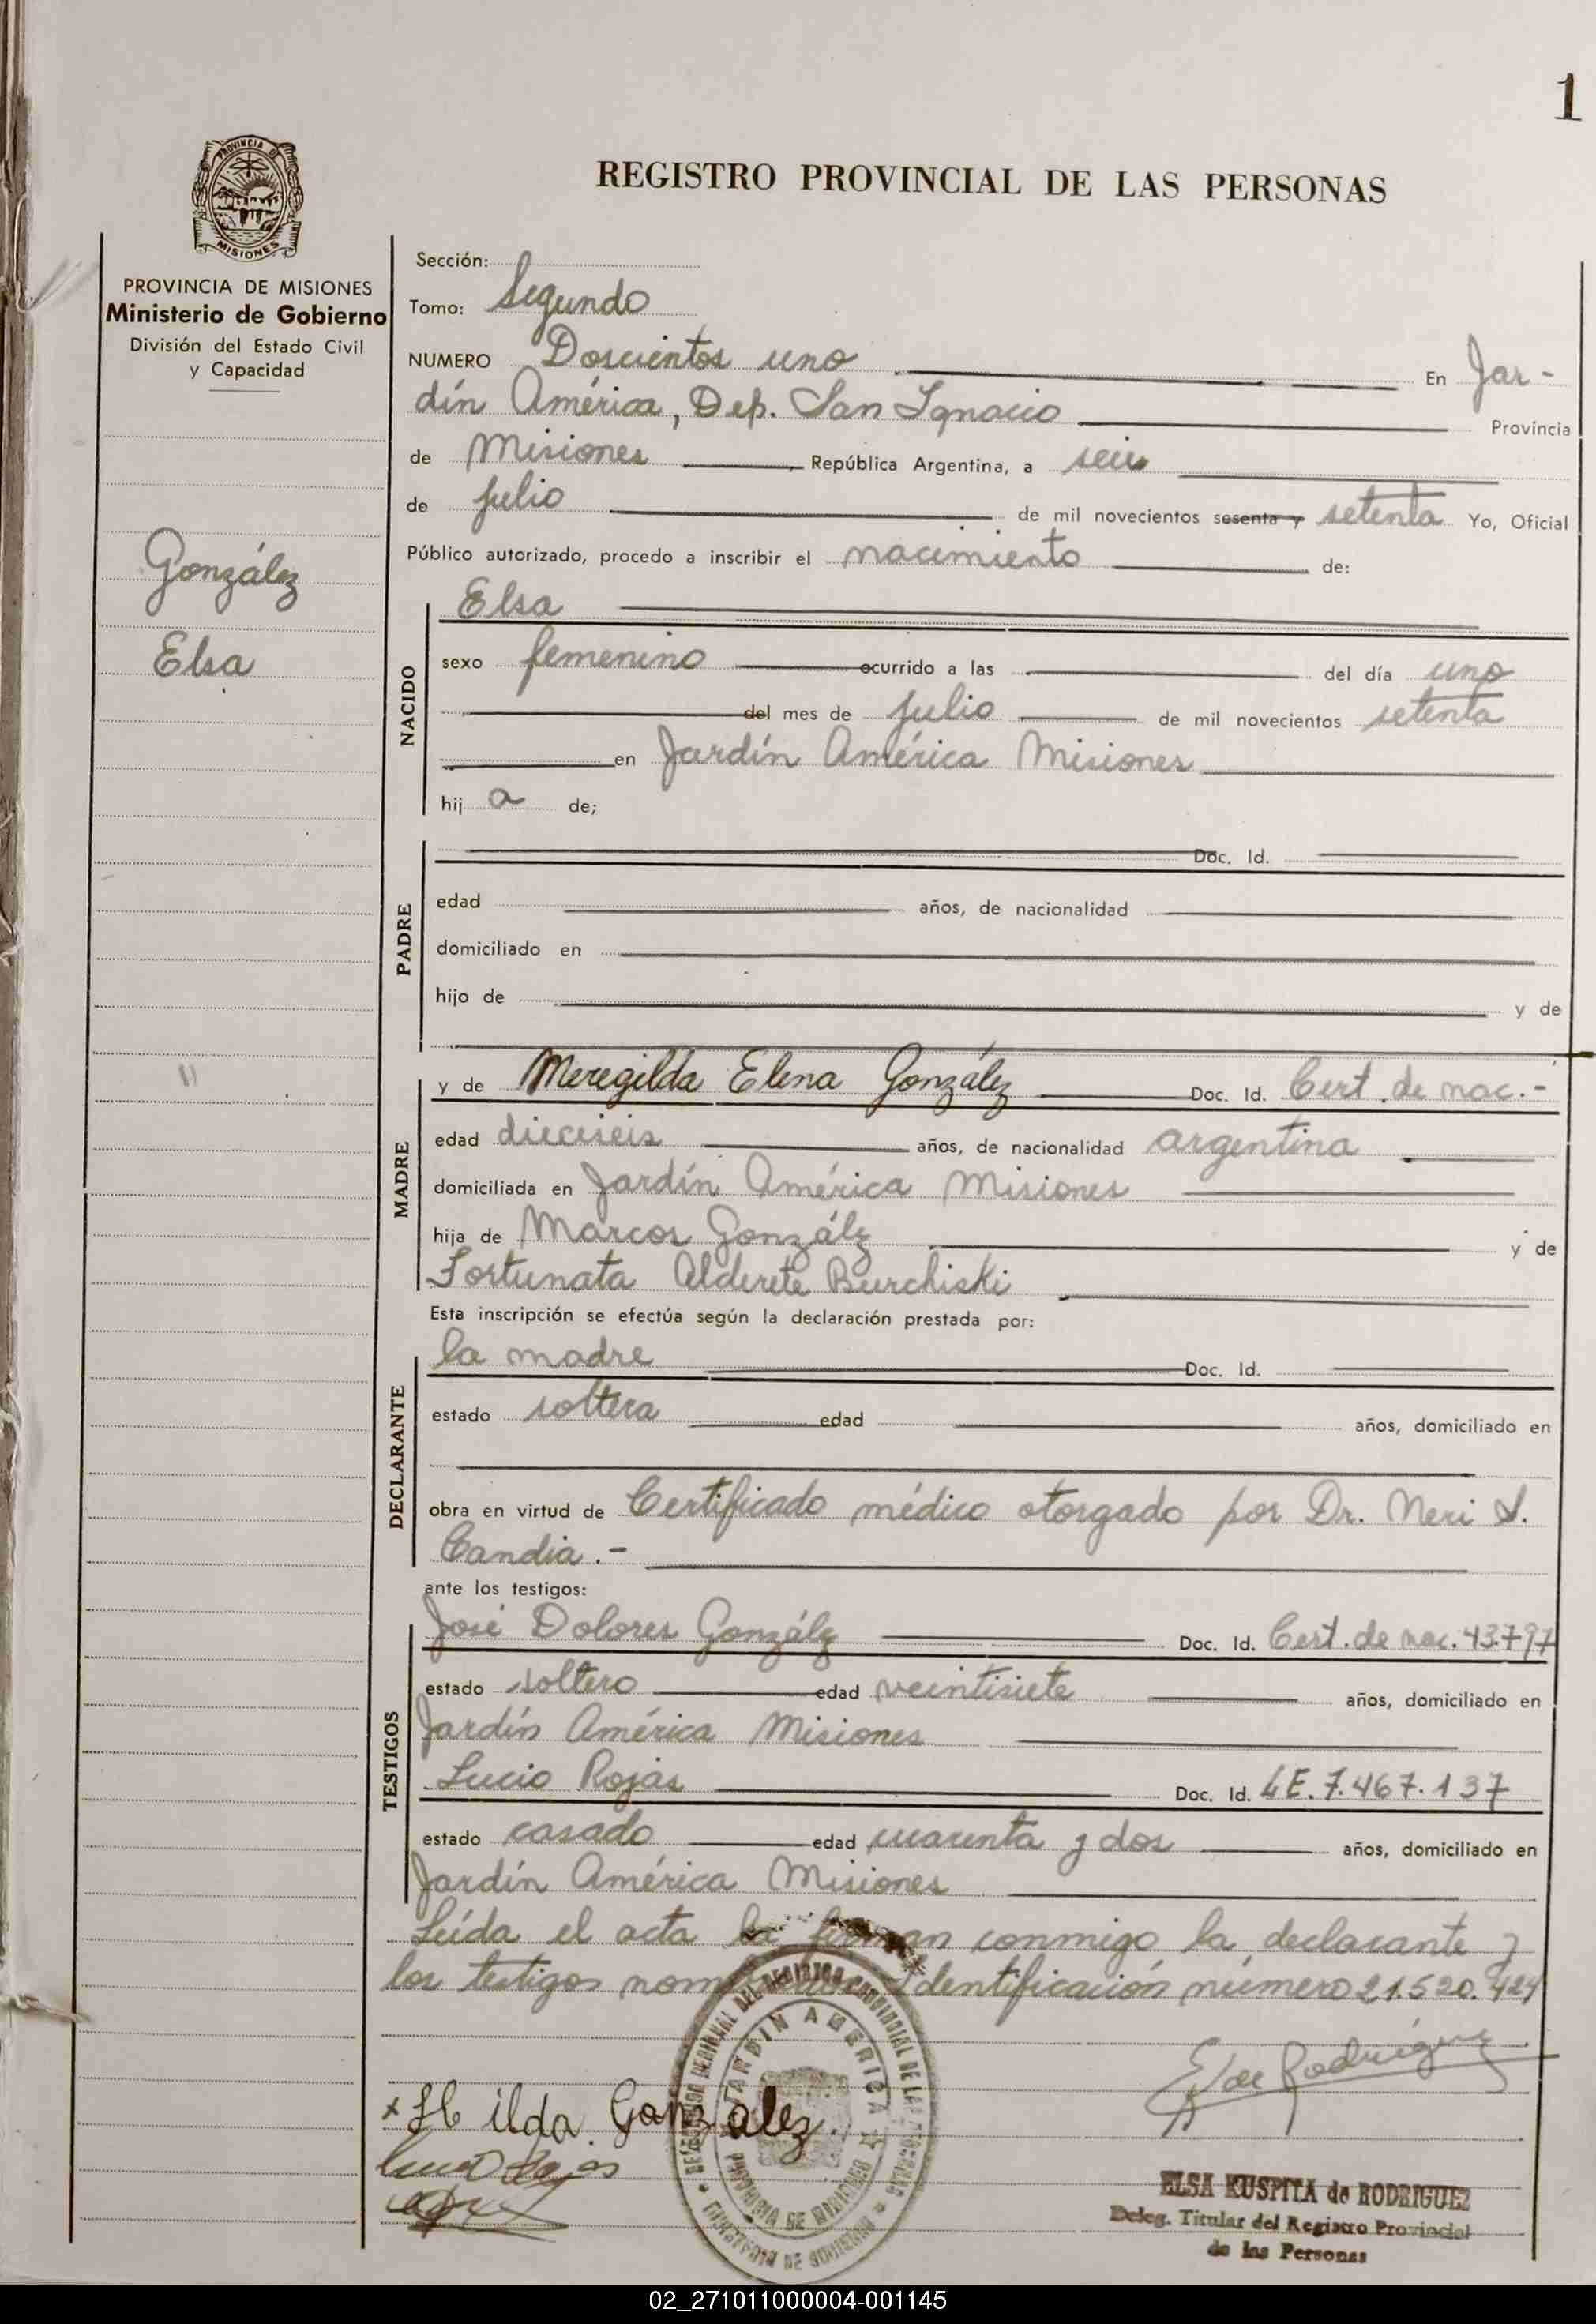 1
REGISTRO PROVINCIAL DE LAS PERSONAS
PROVINCIA DE MISIONES
Ministerio de Gobierno
División del Estado Civil
y Capacidad
González
Elsa
Sección:
Tomo: Segundo
NUMERO Doscientos uno En Jar-
dín América, Dep. San Ignacio Provincia
de Misiones República Argentina, a seis
de julio de mil novecientos sesenta y setenta Yo, Oficial
Público autorizado, procedo a inscribir el nacimiento de:
NACIDO
Elsa
sexo femenino ocurrido a las del día uno
del mes de julio de mil novecientos setenta
en Jardín América Misiones
hij a de;
PADRE
Doc. Id.
edad años, de nacionalidad
domiciliado en
hijo de y de
MADRE
y de Meregilda Elena González Doc. Id. Cert. de nac.-
edad dieciseis años, de nacionalidad argentina
domiciliada en Jardín América Misiones
hija de Marcos Gonzálz y de
Fortunata Alderete Burchiski
Esta inscripción se efectúa según la declaración prestada por:
DECLARANTE
la madre Doc. Id.
estado soltera edad años, domiciliado en
obra en virtud de Certificado médico otorgado por Dr. Neri S.
Candia.-
ante los testigos:
TESTIGOS
José Dolores Gonzálz Doc. Id. Cert. de nac. 43.797
estado soltero edad veintisiete años, domiciliado en
Jardín América Misiones
Lucio Rojas Doc. Id. LE. 7.467.137
estado casado edad cuarenta y dos años, domiciliado en
Jardín América Misiones
Leída el acta la firman conmigo la declarante y
los testigos Identificación número 21.520.424
E K de Rodríguez
x H ilda González
JARDIN AMERICA
PROVINCIA DE MISIONES
MINISTERIO DE GOBIERNO
ELSA KUSPITA de RODRIGUEZ
Deleg. Titular del Registro Provincial
de las Personas
02_271011000004-001145